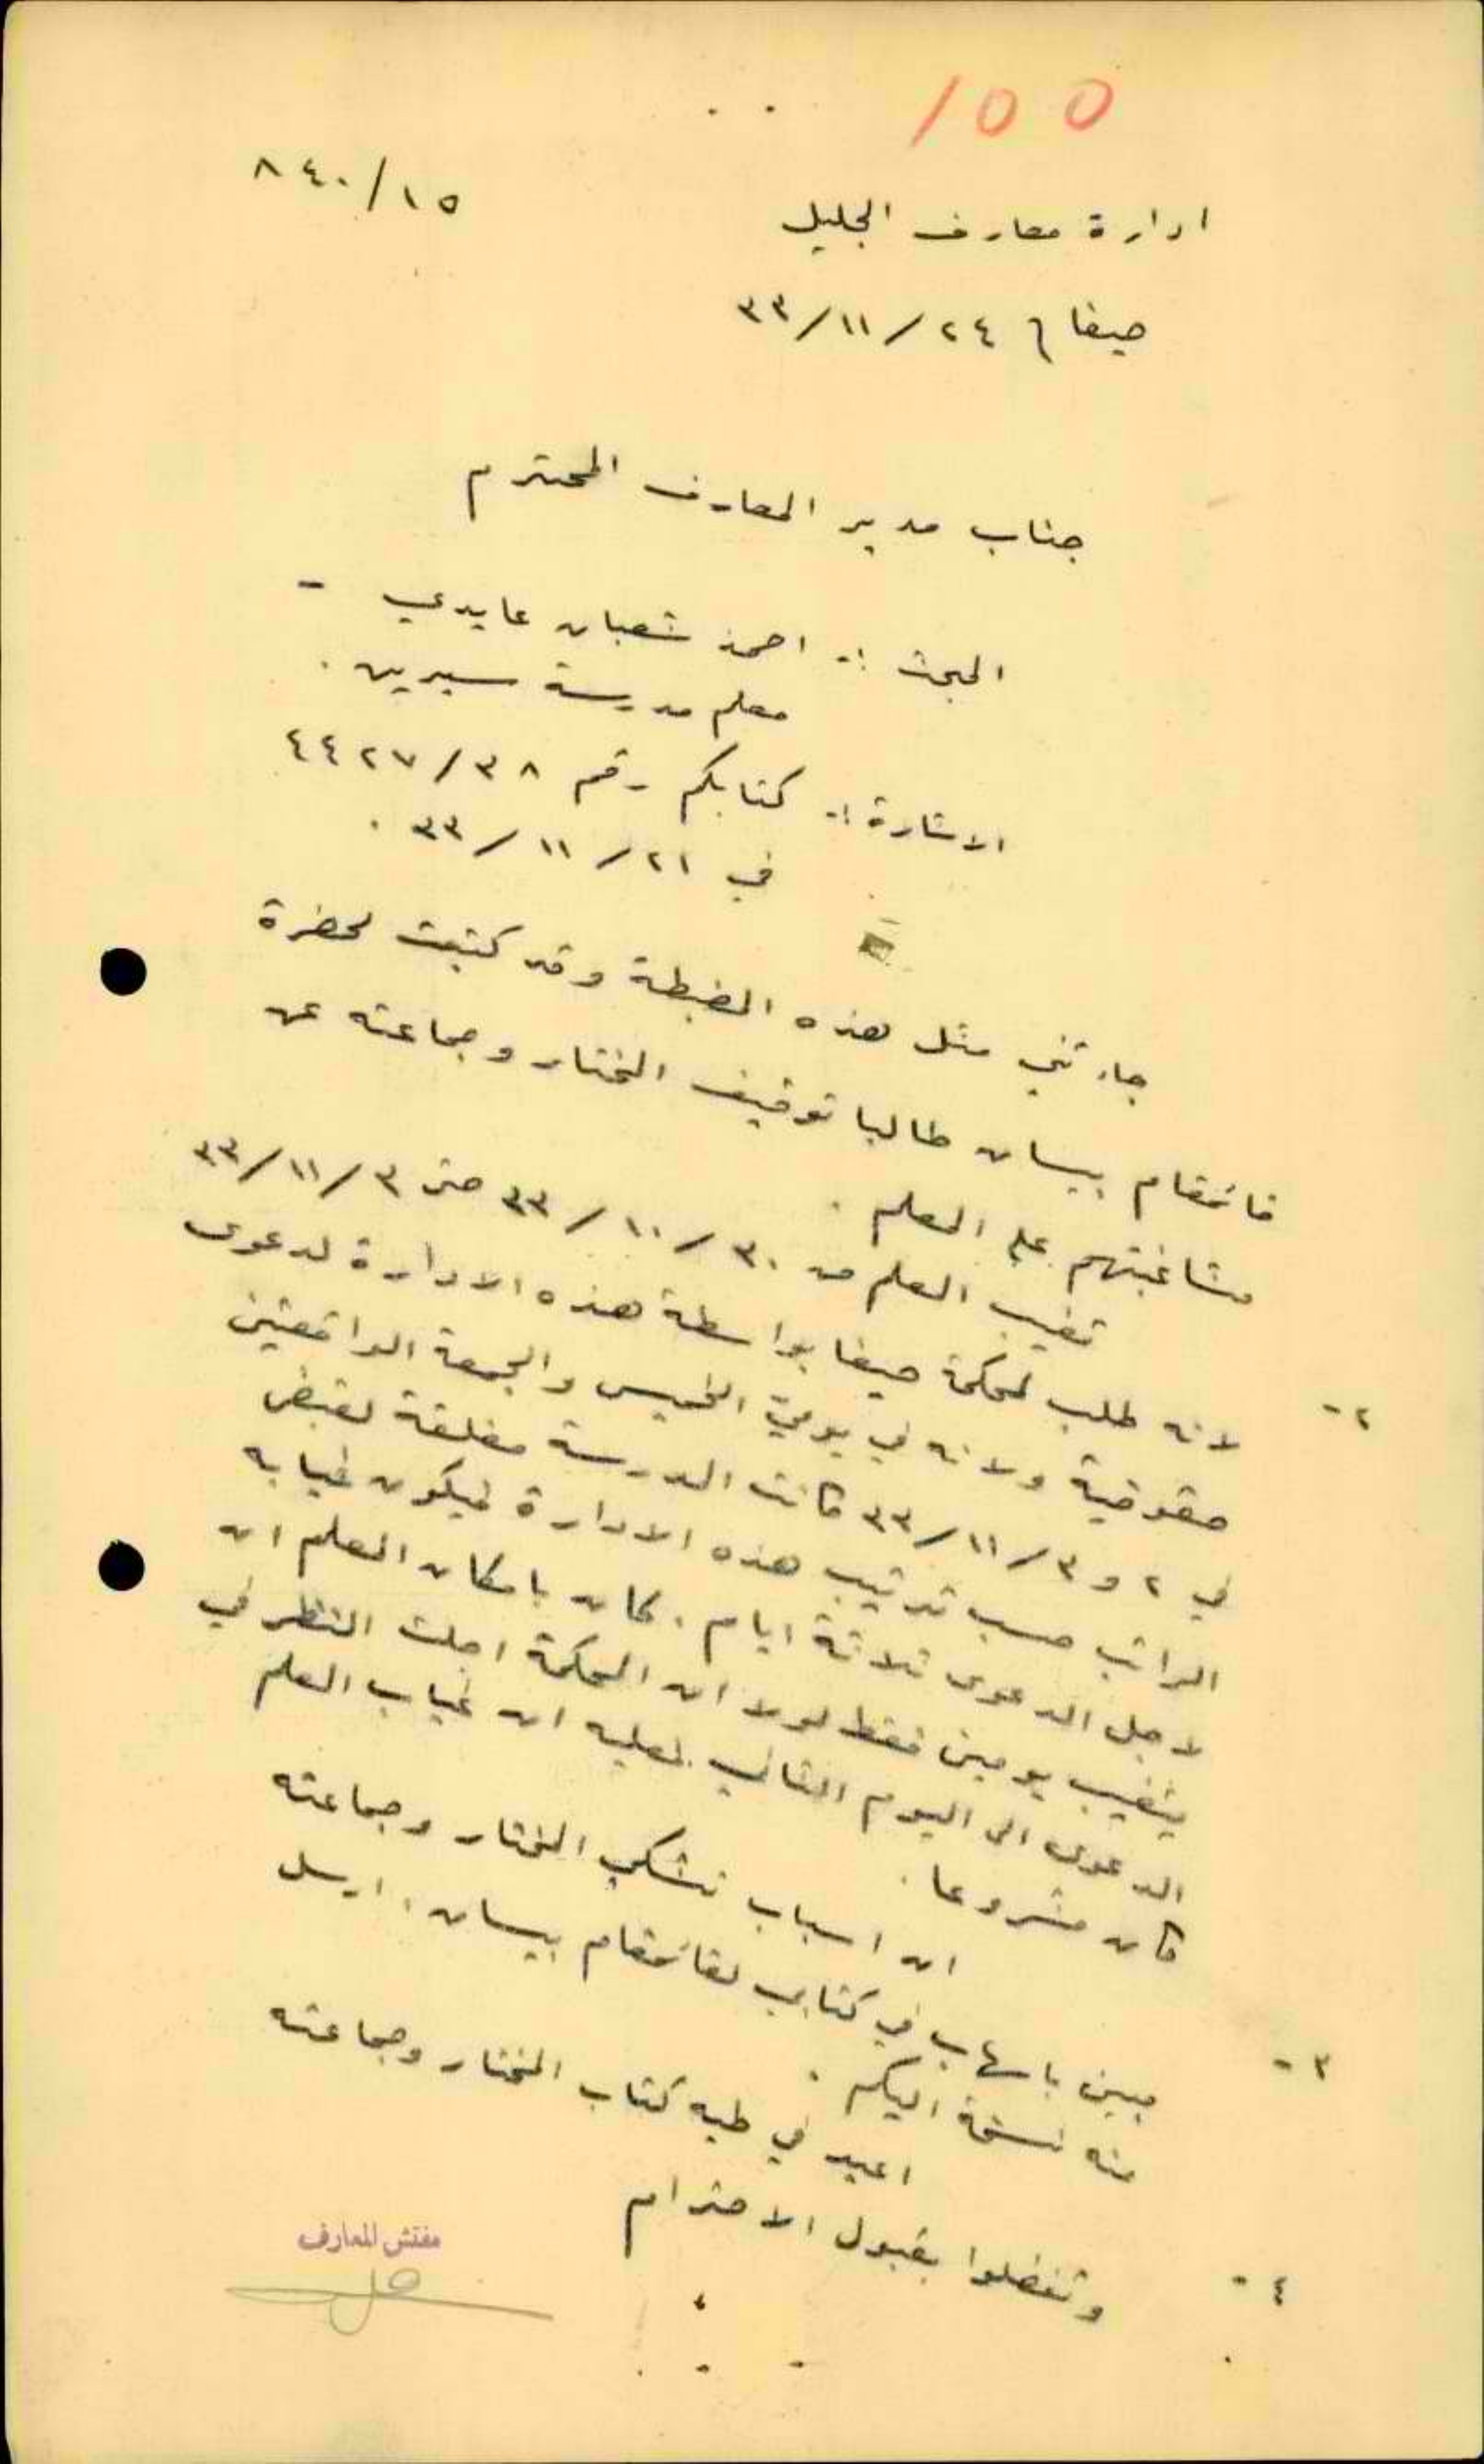 100
١٥/٨٤٠
ادارة معارف الجليل
حيفا في ٢٤/١١/٣٣
جناب مدير المعارف المحترم
المبحث :- احمد شعبان عايدي -
معلم مدرسة سيرين .
الاشارة :- كتابكم رقم ٣٨/٤٤٢٧
في ٢١/١١/٣٣ .
جاءتني مثل هذه المضبطة وقد كتبت لحضرة
قائمقام بيسان طالبا توقيف المختار وجماعته عن
مشاغبتهم على المعلم .
٢- تغيب المعلم من ٣٠/١٠/٣٣ حتى ٣/١١/٣٣
لانه طلب لمحكمة حيفا بواسطة هذه الادارة لدعوى
حقوقية ولانه في يومي الخميس والجمعة الواقعتين
في ٢ و ٣/١١/٣٣ كانت المدرسة مغلقة لقبض
الراتب حسب ترتيب هذه الادارة فيكون غيابه
لاجل الدعوى ثلاثة ايام . كان بامكان المعلم ان
يتغيب يومين فقط لولا ان المحكمة اجلت النظر في
الدعوى الى اليوم التالي . فعليه ان غياب المعلم
كان مشروعا .
٣- ان اسباب تشكي المختار وجماعته
مبين باسهاب في كتابي لقائمقام بيسان . ارسل
منه نسخة اليكم .
٤- اعيد في طيه كتاب المختار وجماعته
وتفضلوا بقبول الاحترام
مفتش المعارف